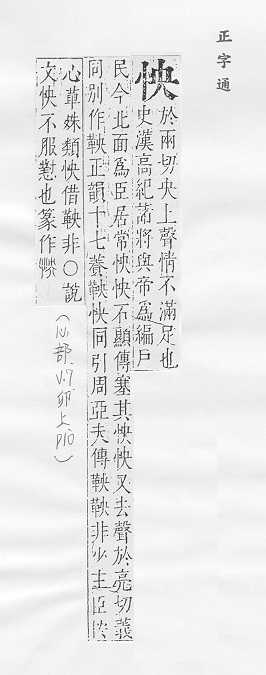 正字通
怏
於兩切央上聲情不滿足也
史漢高紀諸將與帝爲編戶
民今北面爲臣居常怏怏石顯傳塞其怏怏又去聲於亮切義
同別作鞅正韻十七養鞅怏同引周亞夫傳鞅鞅非少主臣怏
心革姝類怏借鞅非〇說
文怏不服懟也篆作
(心部 卯上 P10)